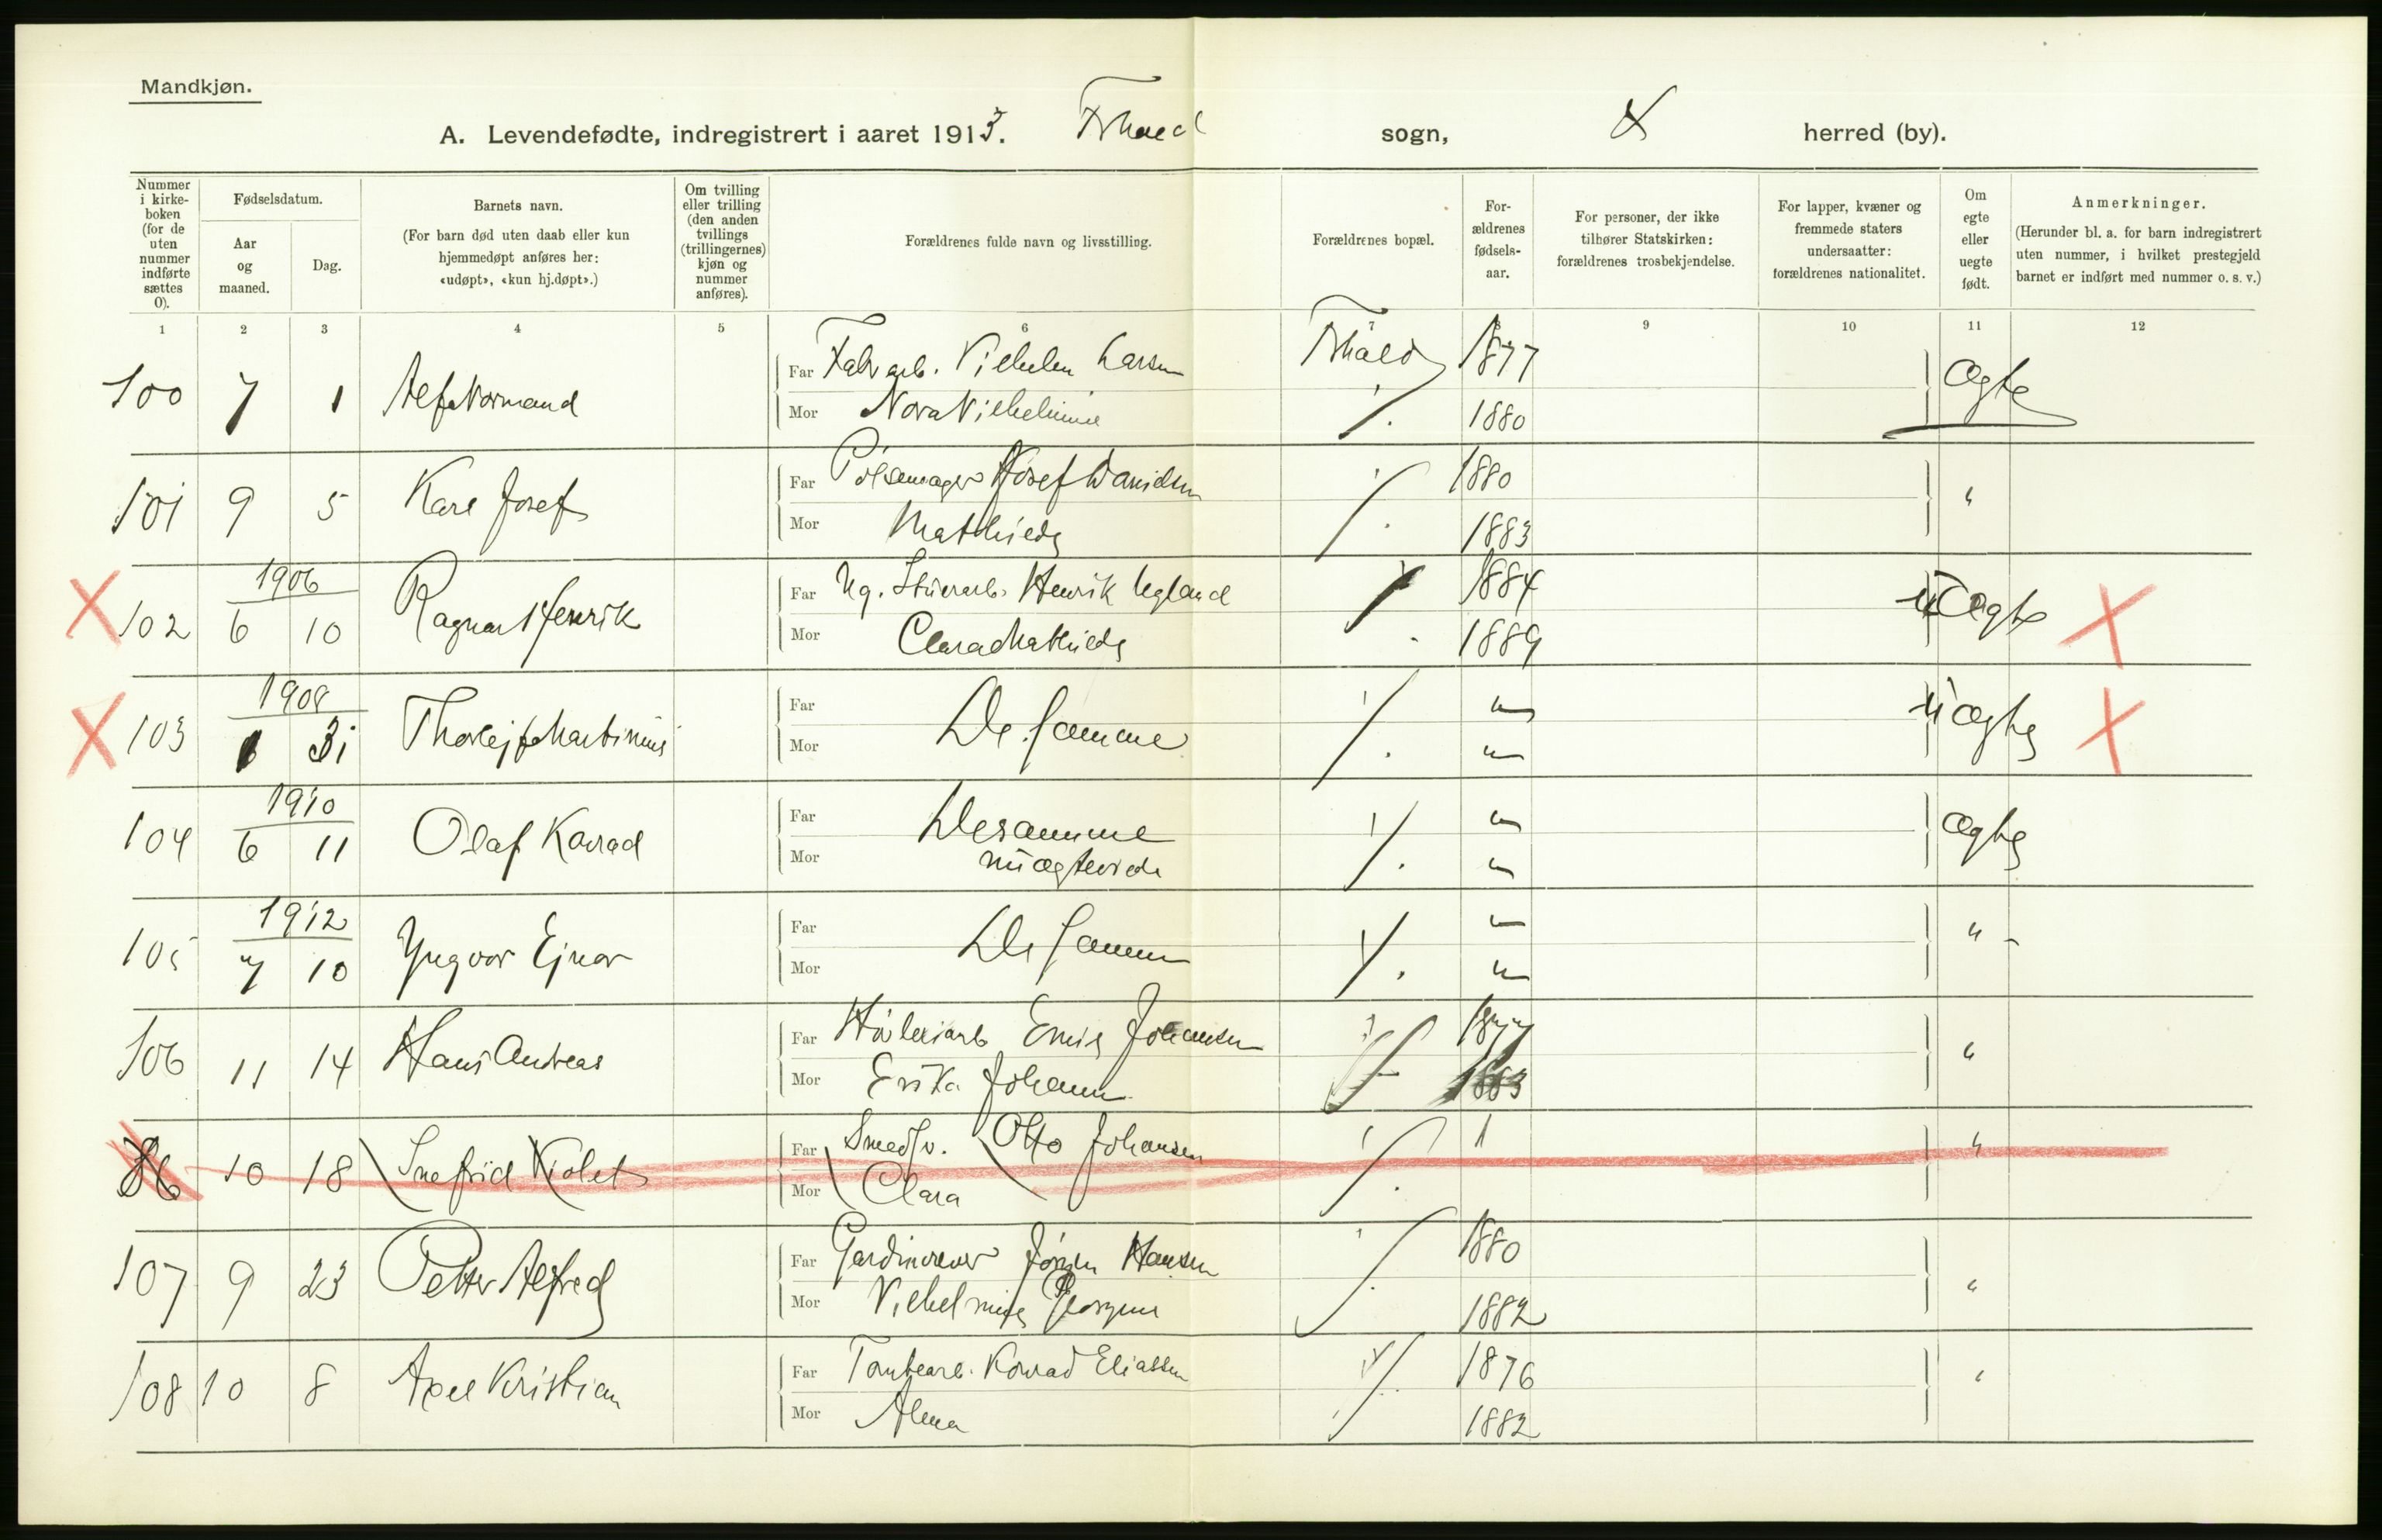 Mandkjøn.
A. Levendefødte, indregistrert i aaret 1913. Frhald sogn, herred (by).
Nummer i kirke- boken (for de uten nummer indførte sættes 0).
Fødselsdatum.
Aar og maaned.
Dag.
Barnets navn.
(For barn død uten daab eller kun hjemmedøpt anføres her: «udøpt», «kun hj.døpt».)
Om tvilling eller trilling (den anden tvillings (trillingernes) kjøn og nummer anføres).
Forældrenes fulde navn og livsstilling.
Forældrenes bopæl.
For- ældrenes fødsels- aar.
For personer, der ikke tilhører Statskirken: forældrenes trosbekjendelse.
For lapper, kvæner og fremmede staters undersaatter: forældrenes nationalitet.
Om egte eller uegte født.
Anmerkninger.
(Herunder bl. a. for barn indregistrert uten nummer, i hvilket prestegjeld barnet er indført med nummer o. s. v.)
1 2 3 4 5 6 7 8 9 10 11 12
100 7 1 Alf Normand Far Fabrarb. Vilhelm Larsen Frhald 1877 Ægte
Mor Nora Vilhelmine 1880
101 9 5 Karl Josef Far Pølsemager Josef Danielsen 1880 "
Mor Mathilde 1883
1906
102 6 10 Ragnar Henrik Far Ug. Stuerarb. Henrik Ugland 1884 uægte
Mor Clara Mathilde 1889
1908
103 31 Thorleif Martinius Far De samme " uægte
Mor "
1910
104 6 11 Olaf Konrad Far De samme " Ægte
Mor nu ægteviede "
1912
105 7 10 Yngvar Ejnar Far De samme " "
Mor "
106 11 14 Hans Andreas Far Høvleriarb Emil Johansen 1877 "
Mor Erika Johanne 1883
10 18 Snefrid Violet Far Smedsv. Otto Johansen "
Mor Clara
107 9 23 Petter Alfred Far Jørgen Hansen 1880 "
Mor Vilhelmine Georgine 1882
108 10 8 Axel Kristian Far Tomtearb. Konrad Eliassen 1876 "
Mor Alma 1882